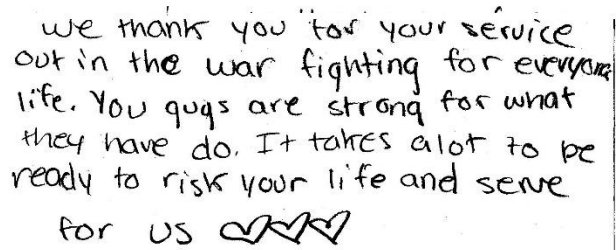 we thank you for your service
out in the war fighting for everyone
life. You guys are strong for what
they have do. It takes alot to be
ready to risk your life and serve
for us ♡♡♡